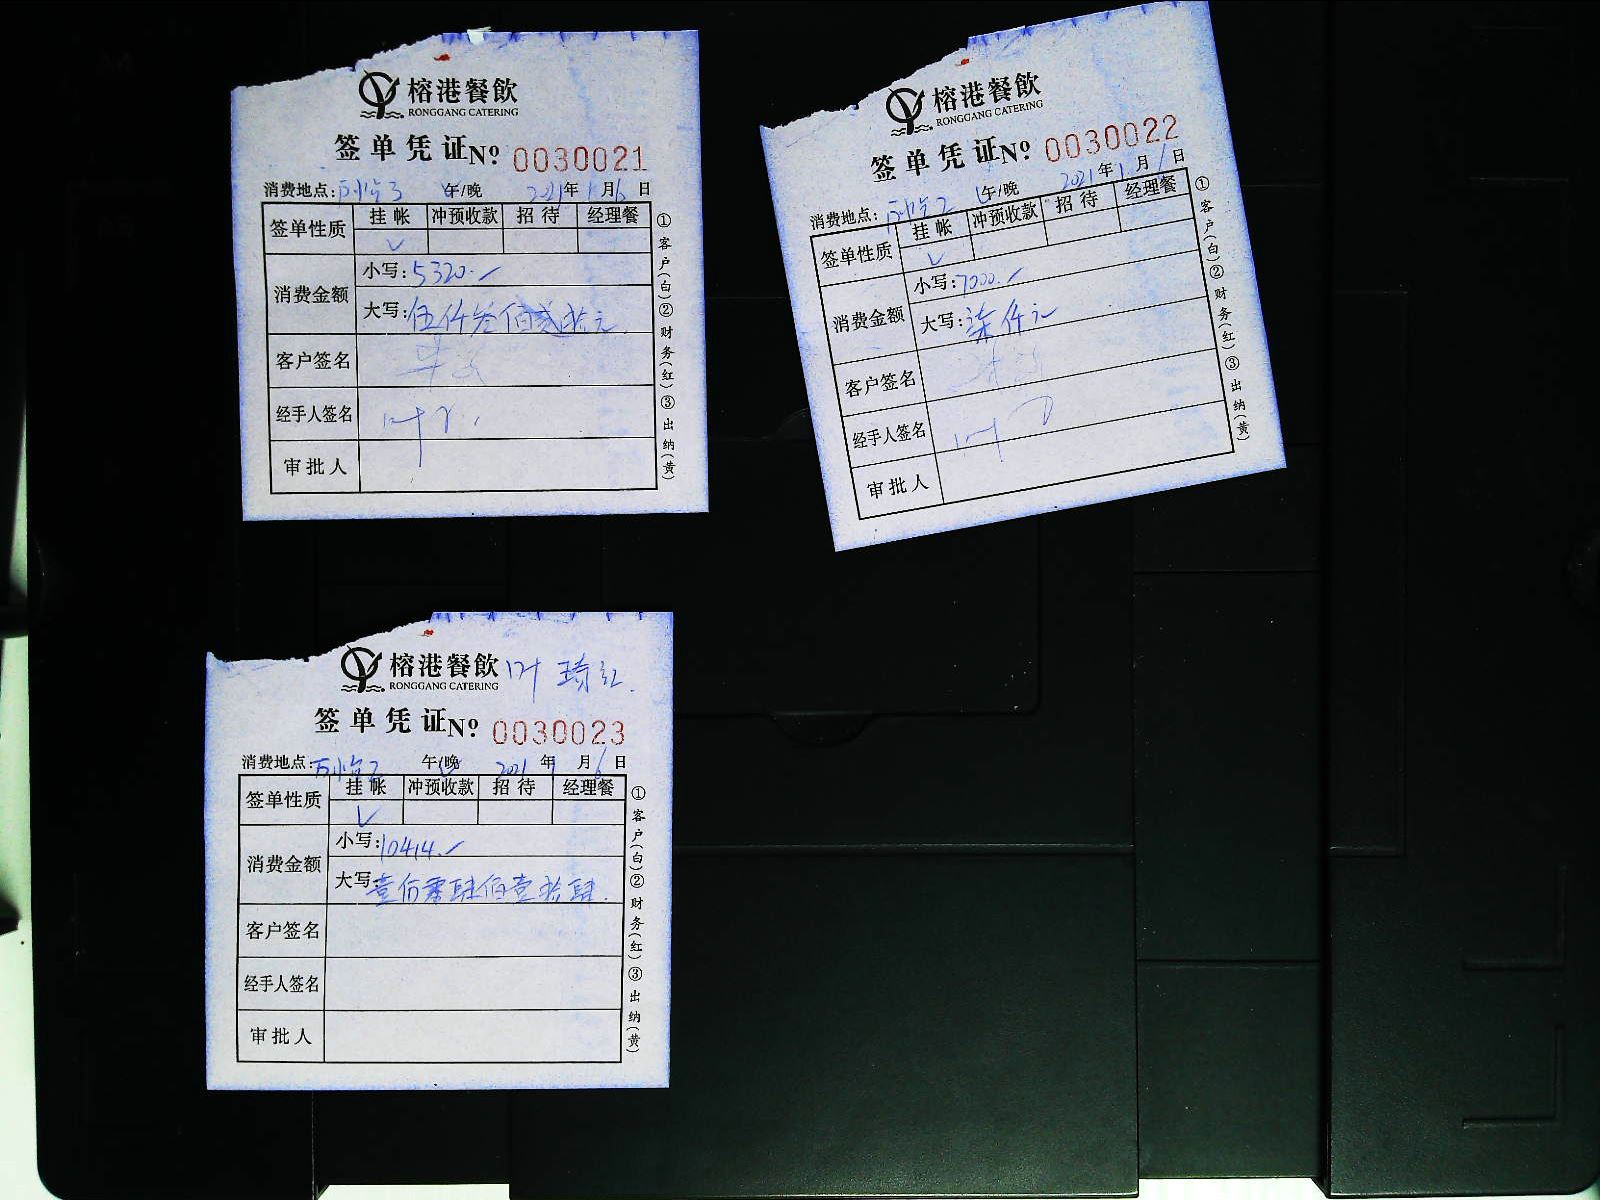 榕港餐飲
RONGGANG CATERING
签单凭证 Nº 0030021
消费地点: 午/晚 2021年1月6日
签单性质 挂帐 冲预收款 招待 经理餐
✓
消费金额 小写:5320.
大写:伍仟叁佰贰拾元
客户签名
经手人签名 叶
审批人
①客户(白)②财务(红)③出纳(黄)
榕港餐飲
RONGGANG CATERING
签单凭证 Nº 0030022
消费地点: 午/晚 2021年1月 日
签单性质 挂帐 冲预收款 招待 经理餐
✓
消费金额 小写:7000.
大写:柒仟元
客户签名
经手人签名 叶
审批人
①客户(白)②财务(红)③出纳(黄)
榕港餐飲 叶琦红
RONGGANG CATERING
签单凭证 Nº 0030023
消费地点: 午/晚 2021年1月6日
签单性质 挂帐 冲预收款 招待 经理餐
✓
消费金额 小写:10414.
大写 壹万零肆佰壹拾肆.
客户签名
经手人签名
审批人
①客户(白)②财务(红)③出纳(黄)